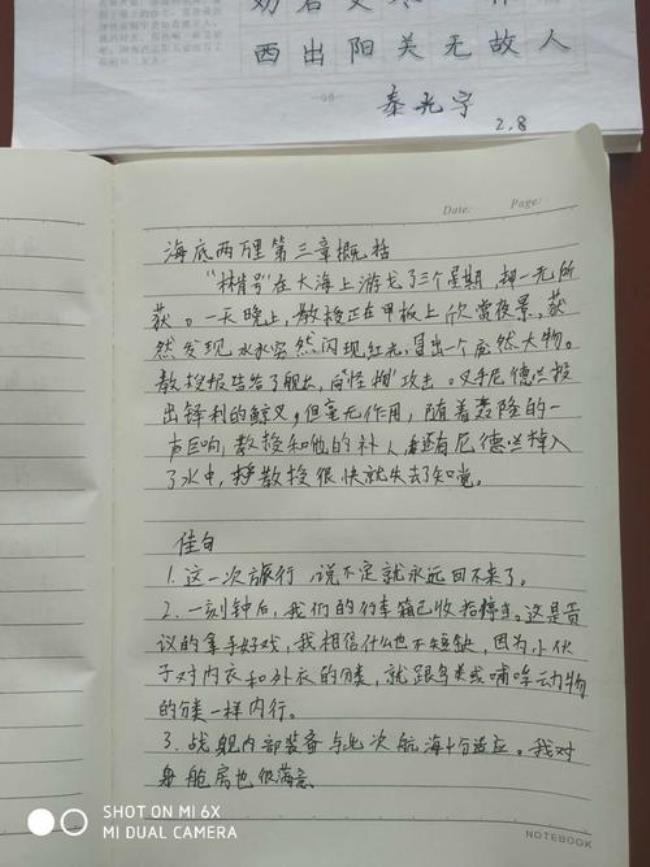 西出阳关无故人
秦光宇
2.8
Date: Page:
海底两万里第三章概括
"林肯号"在大海上游弋了三个星期,却一无所
获。一天晚上,教授正在甲板上欣赏夜景,
然发现水水突然闪现红光,冒出一个庞然大物。
教授报告给了舰长,向"怪物"攻击。叉手尼德兰投
出锋利的鲸叉,但毫无作用,随着轰隆的一
声巨响,教授和他的仆人,还有尼德兰掉入
了水中,教授很快就失去了知觉。
佳句
1.这一次旅行,说不定就永远回不来了。
2.一刻钟后,我们的行李箱已收拾停当。这是贡
议的拿手好戏,我相信什么也不短缺,因为小伙
子对内衣和外衣的分类,就跟鸟类或哺哞动物
的分类一样内行。
3.战舰内部装备与此次航海十分适应。我对
身舱房也很满意
NOTEBOOK
SHOT ON MI 6X
MI DUAL CAMERA